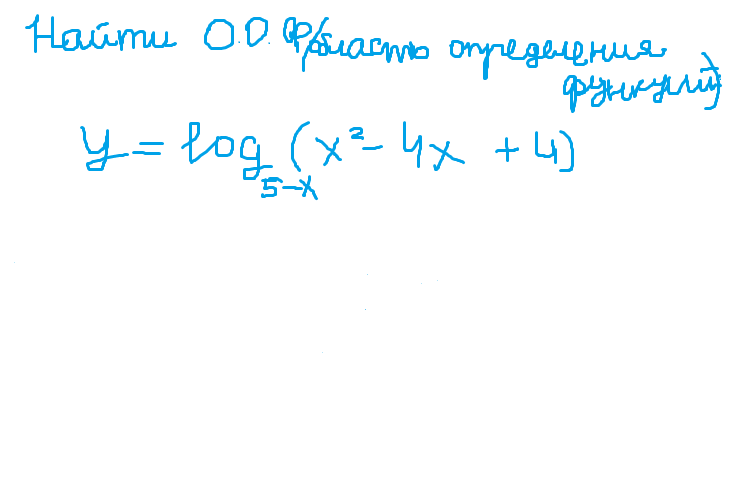 Найти О.О.Ф(область определения
функции)
y = log₅₋ₓ (x² - 4x + 4)